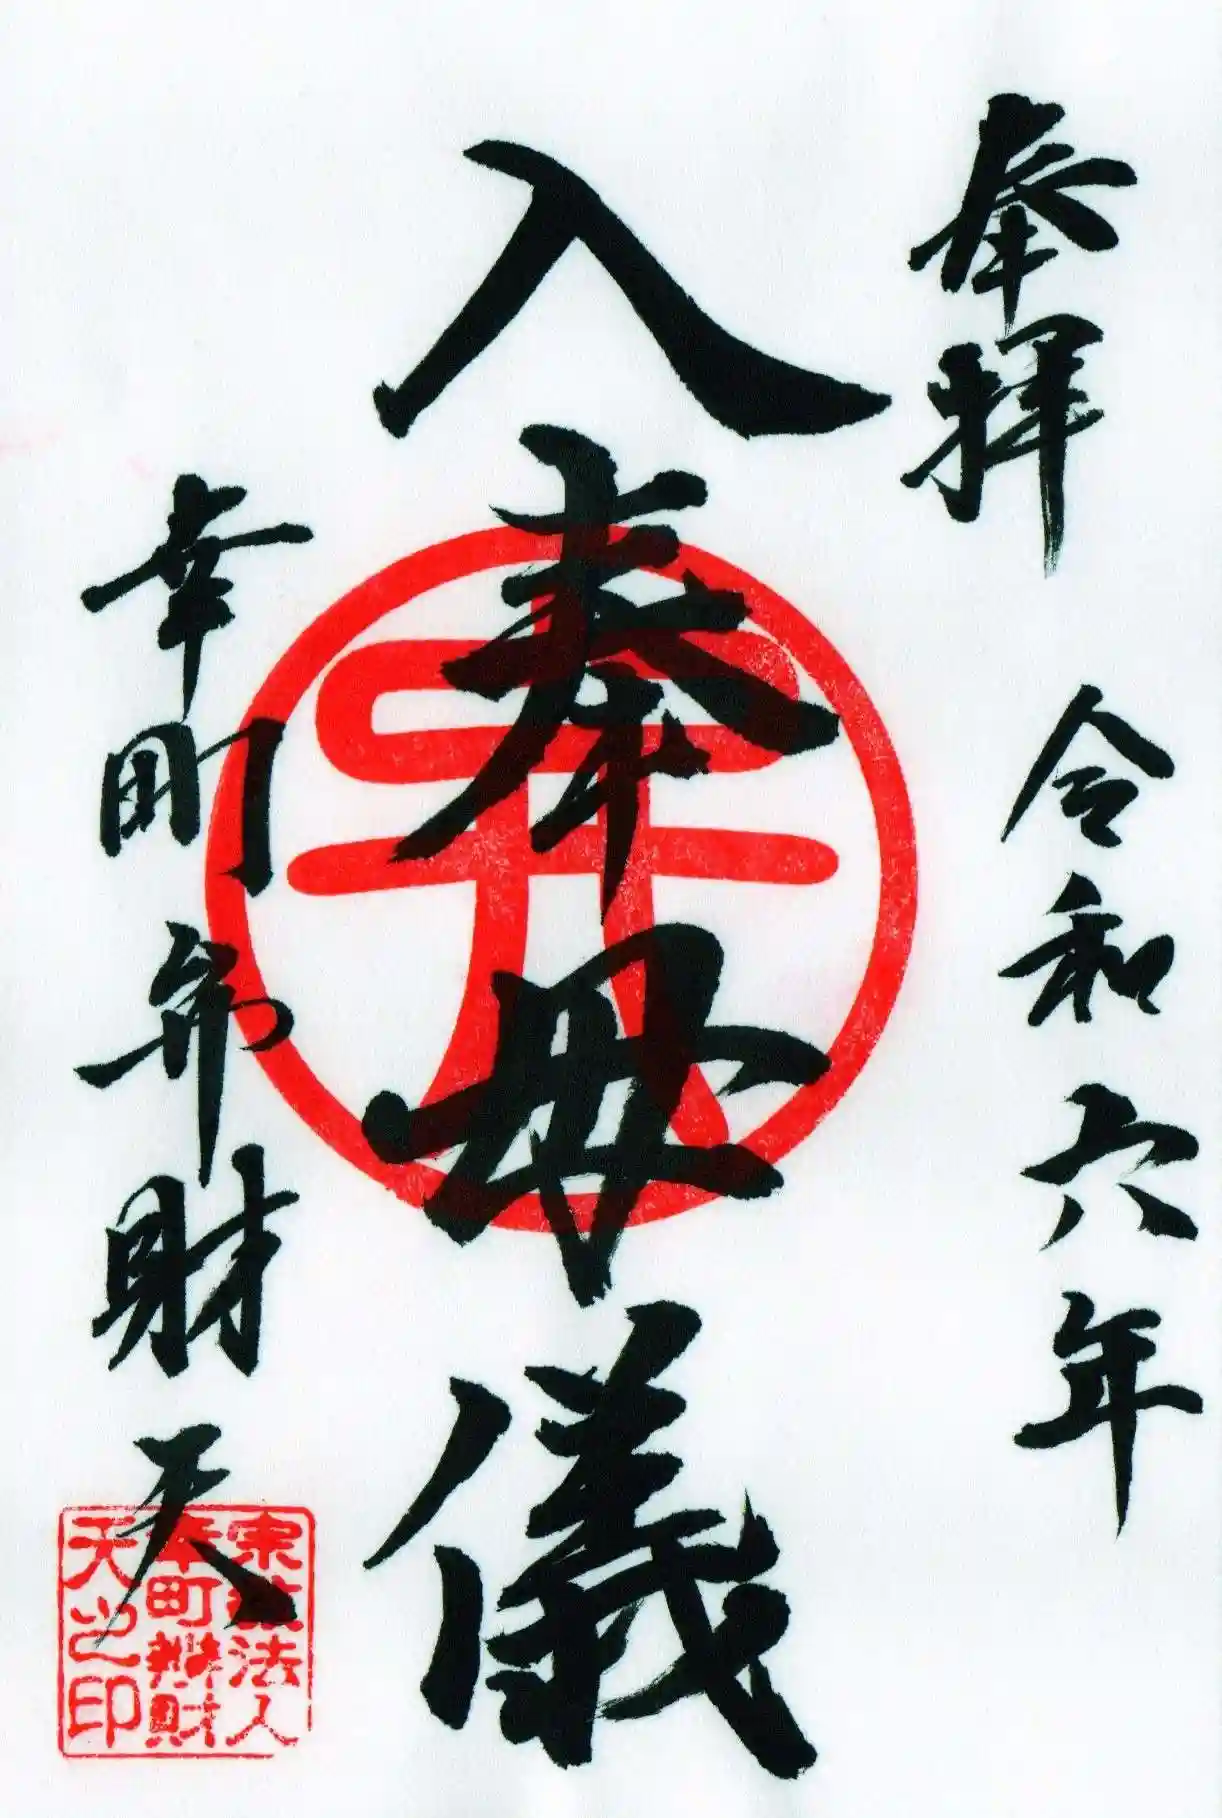 奉拝 令和六年
入奉母儀
幸町弁財天
宗教法人
幸町辨財
天之印